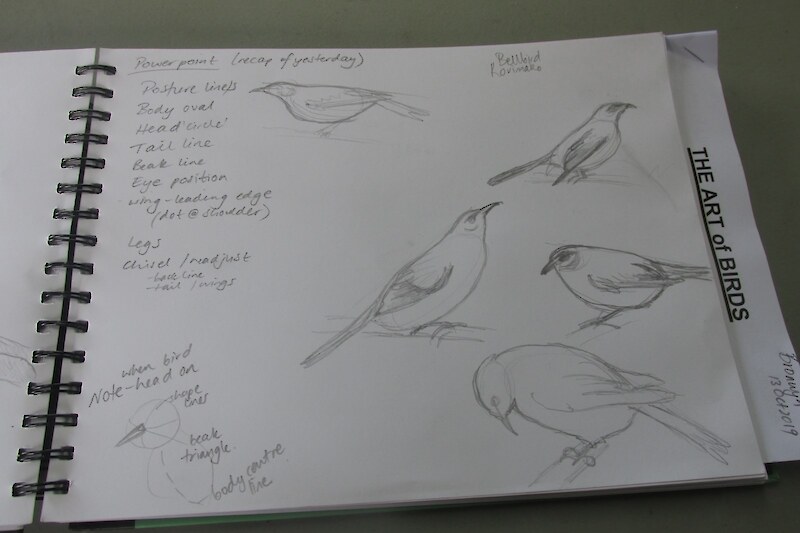 Powerpoint (recap of yesterday)
Posture lines
Body oval
Head 'circle'
Tail line
Beak line
Eye position
wing-leading edge
(dot @ shoulder)
Legs
Chisel / readjust
- back line
- tail / wings
when bird
Note-head on
shape
lines
beak
triangle
body centre
line
Bellbird
Korimako
THE ART of BIRDS
Bronwyn
13 Oct 2019